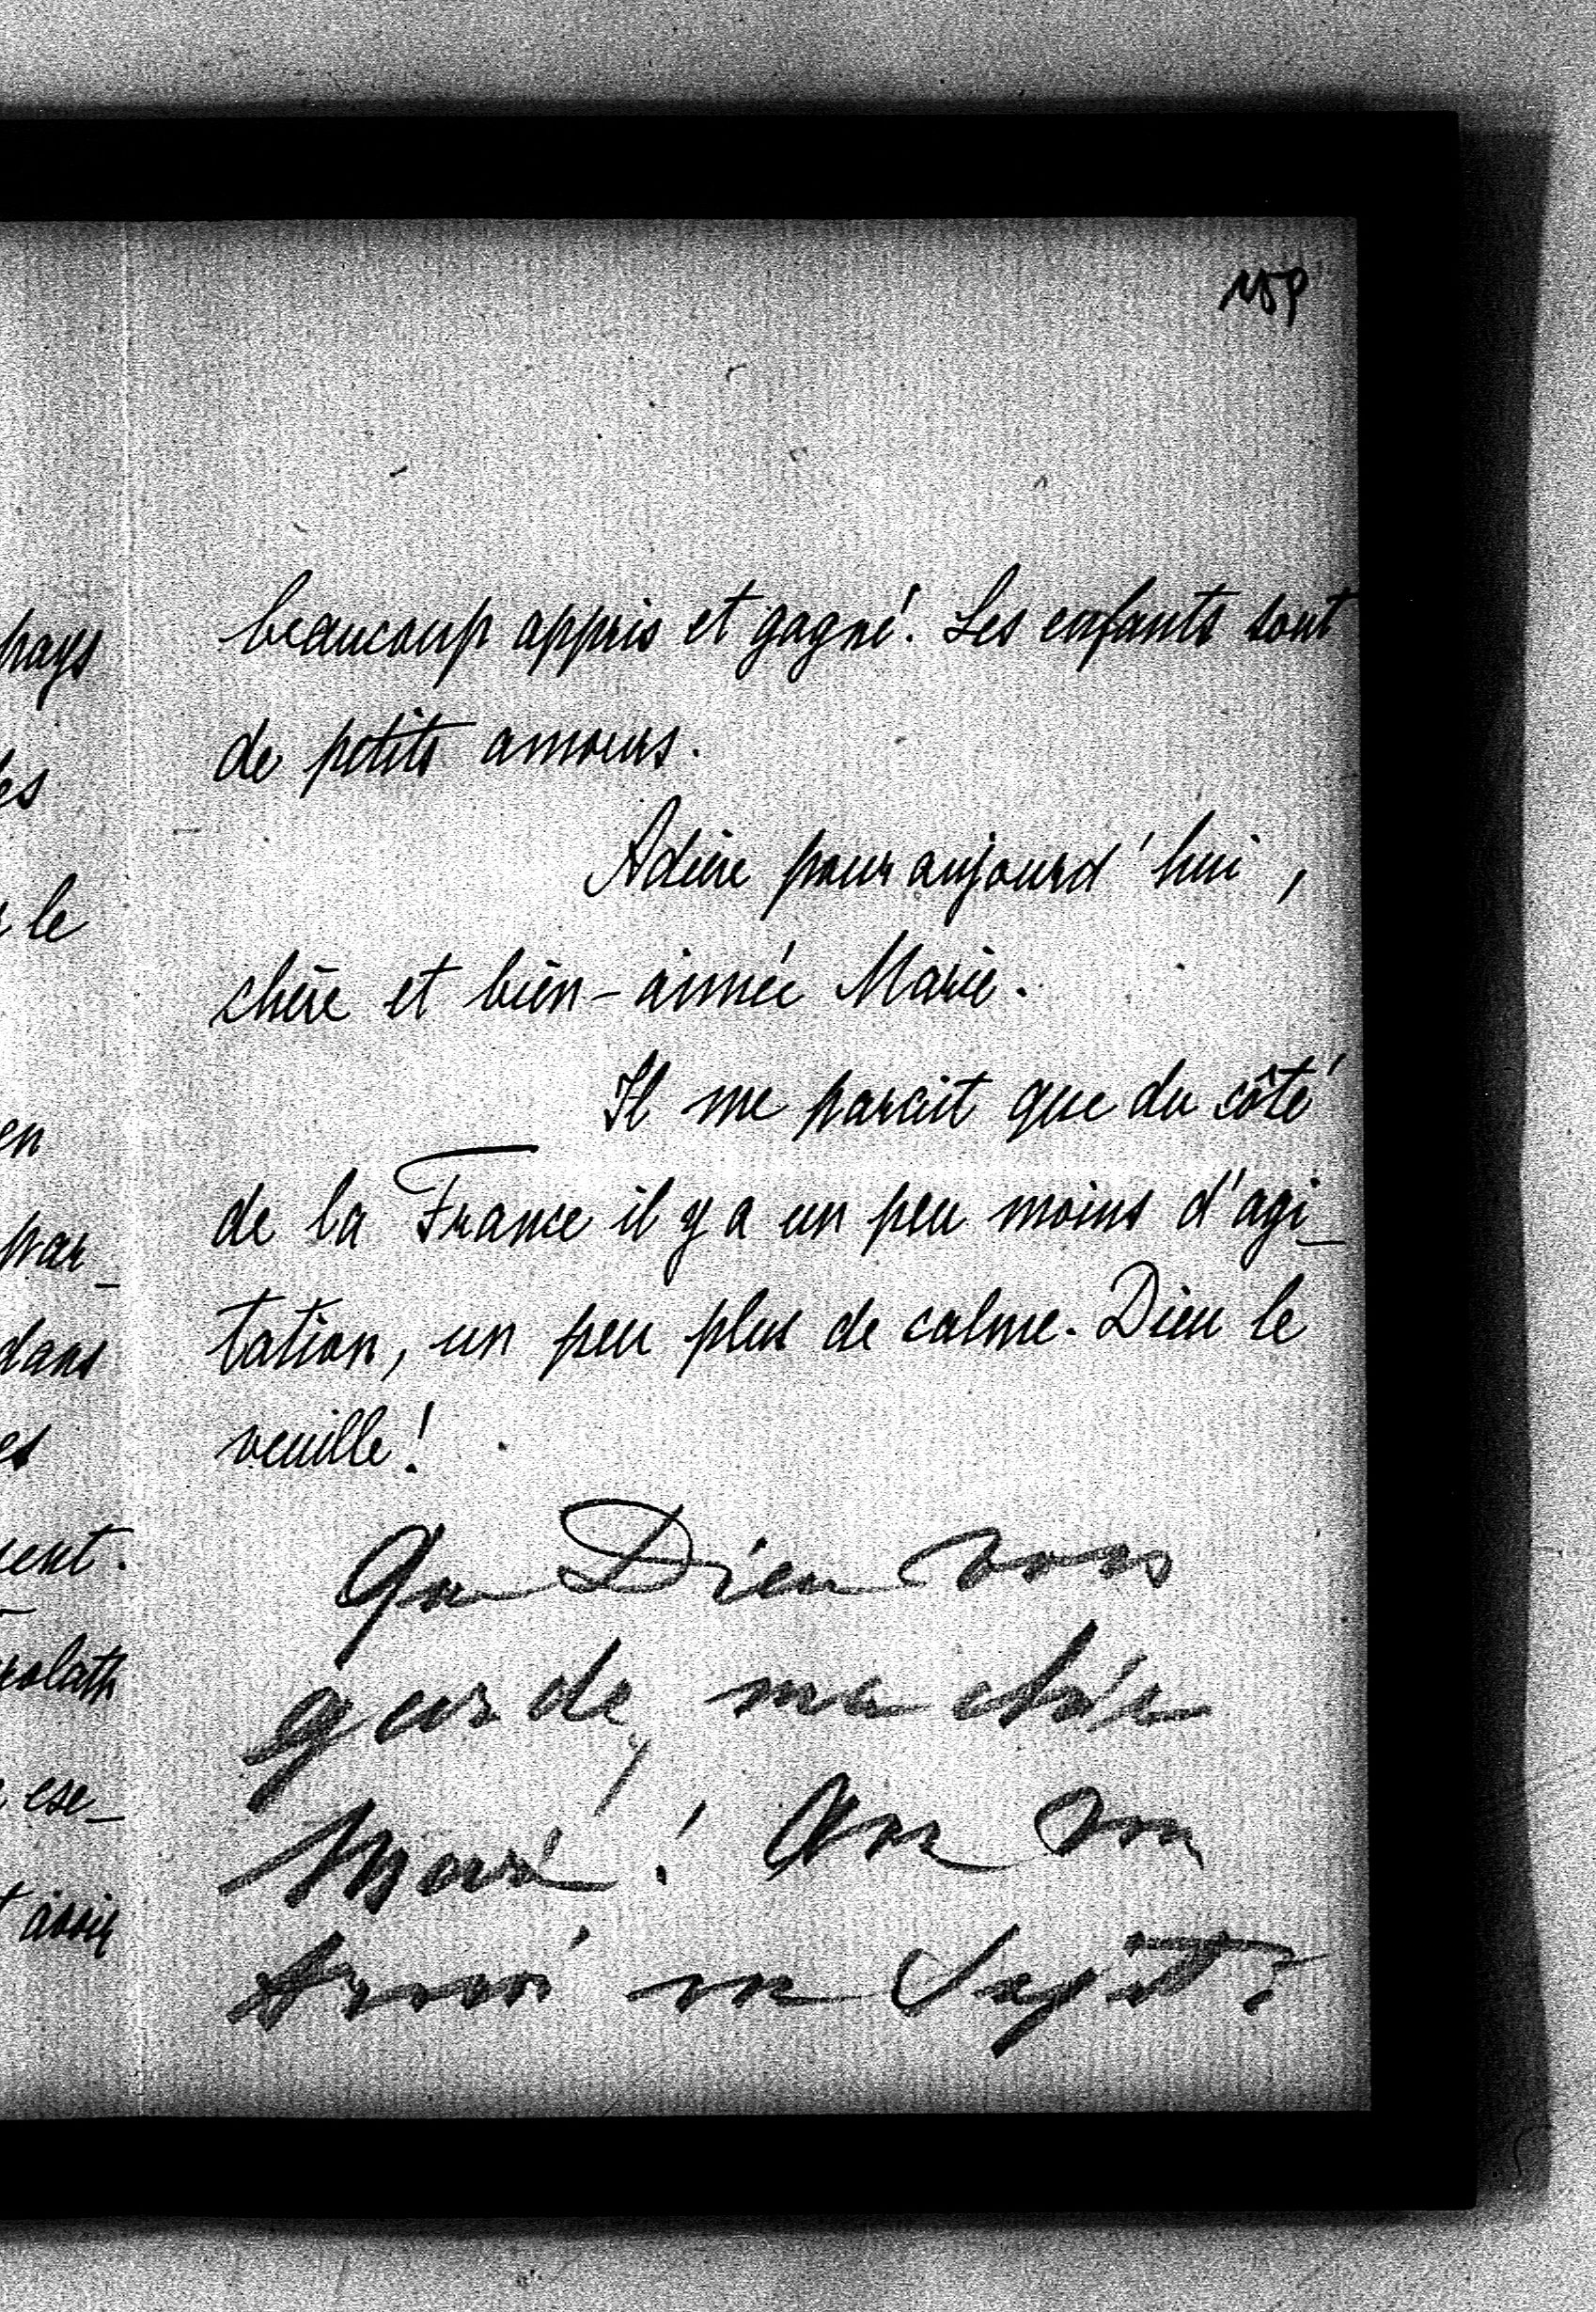 pays
les
le
en
par-
dans
es
ent.
rolath
ese-
beaucoup appris et gagné. Les enfants sont
de petits amours.
Adieu pour aujourd'hui,
chère et bien-aimée Marie.
Il me parait que du côté
de la France il y a un peu moins d'agi-
tation, un peu plus de calme. Dieu le
veuille!
Que Dieu vous
garde, ma chère
Marie! Que